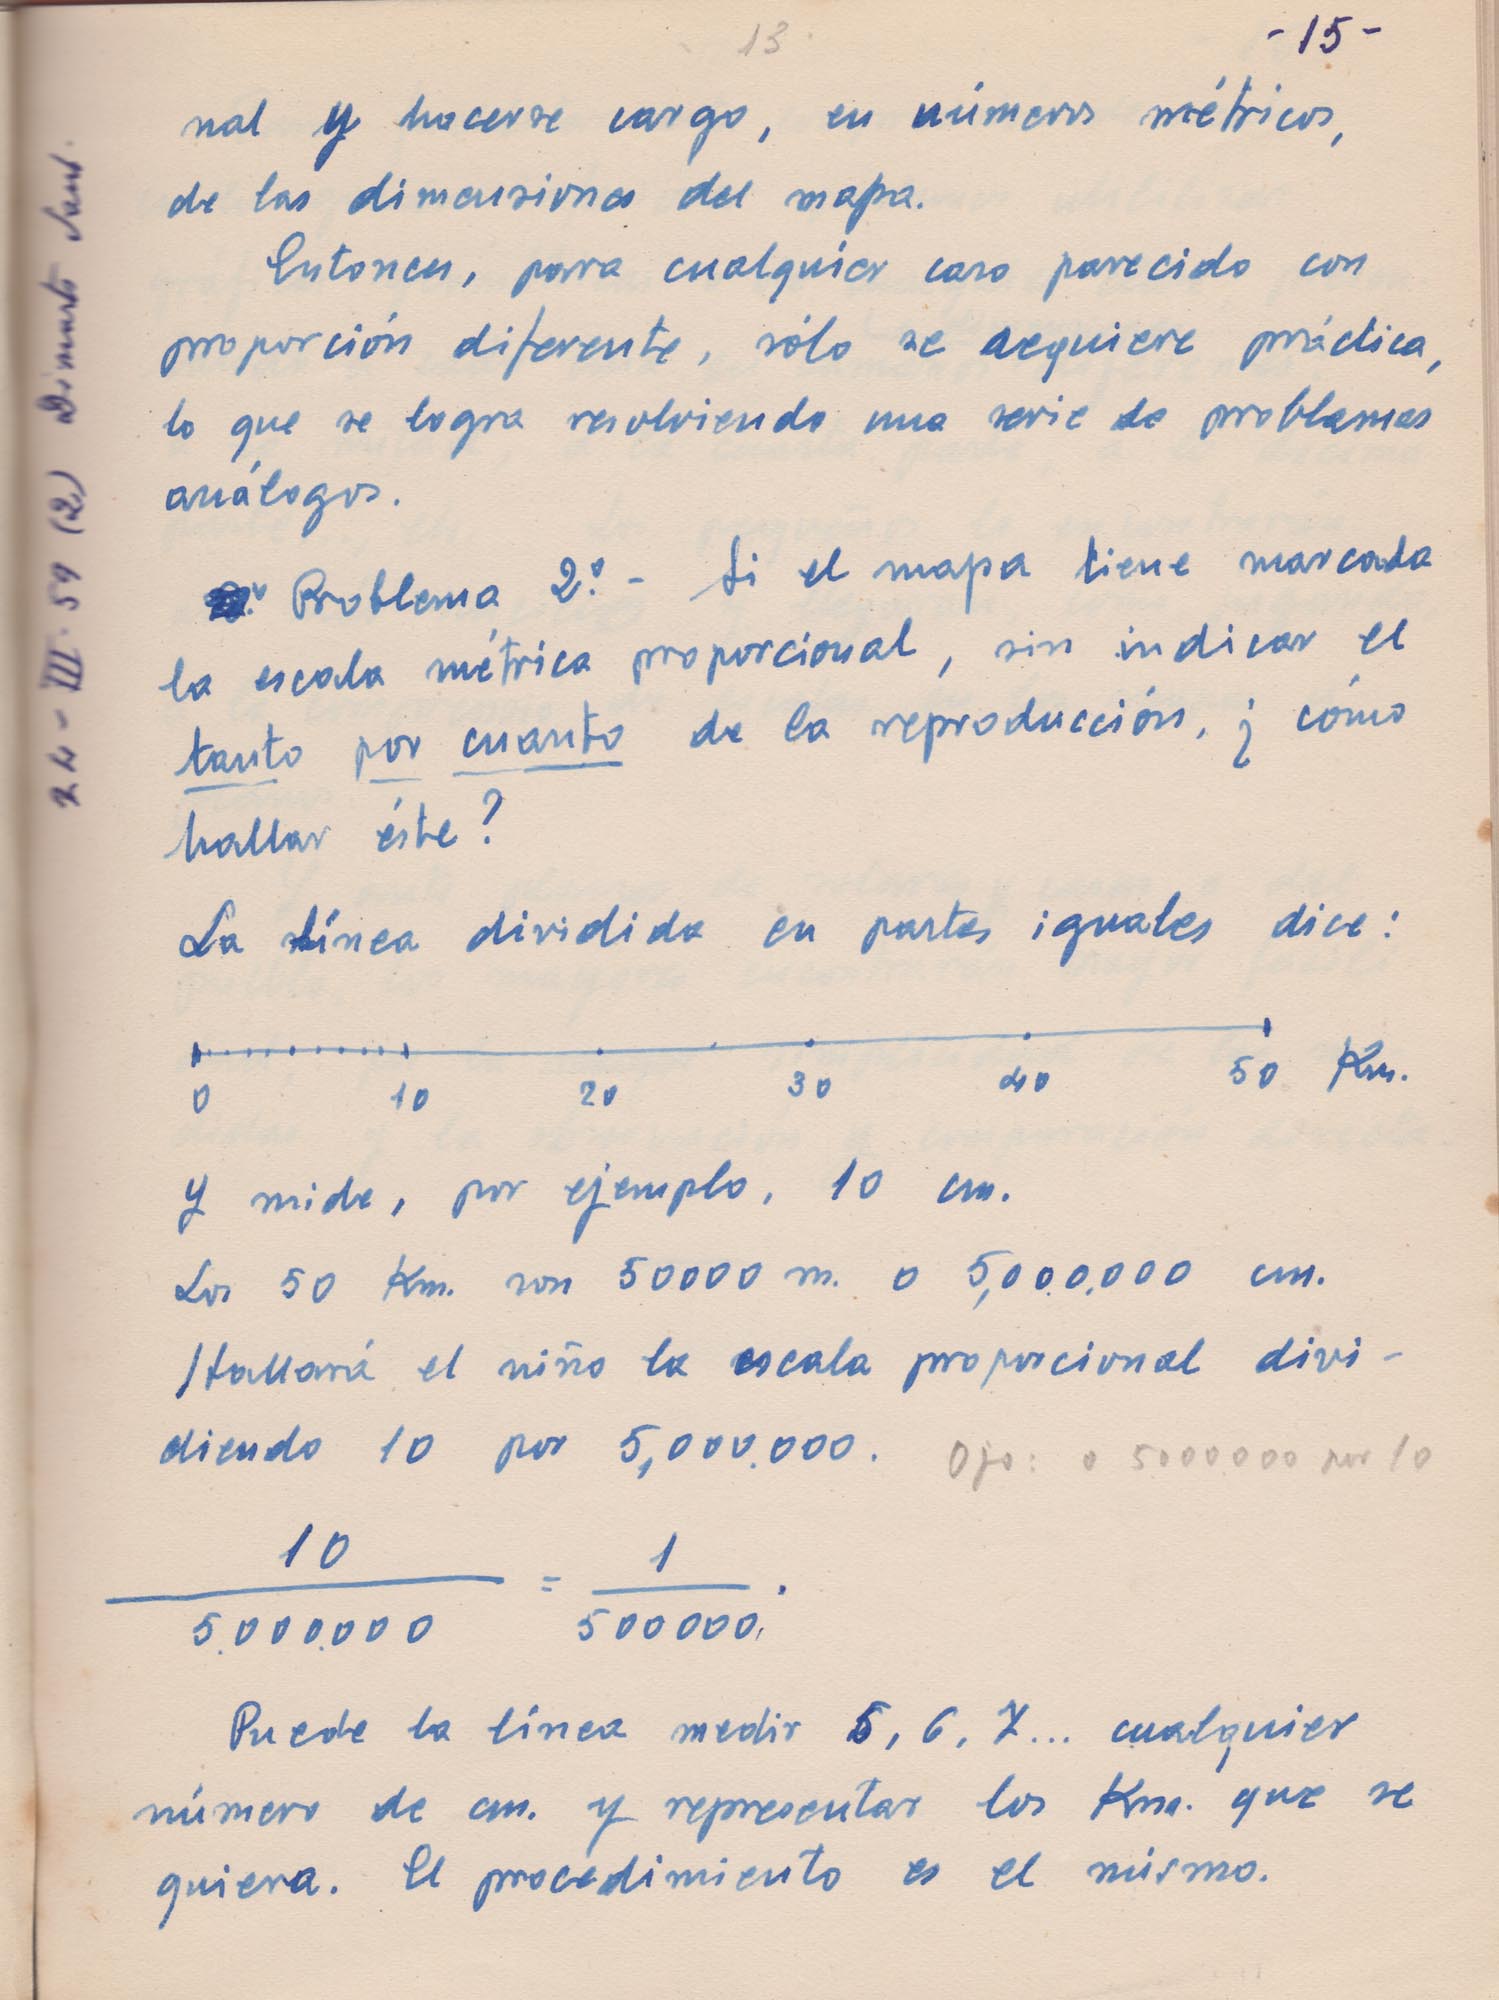 13
-15-
nal y hacerse cargo, en números métricos,
de las dimensiones del mapa.
Entonces, para cualquier caso parecido con
proporción diferente, sólo se requiere práctica,
lo que se logra resolviendo una serie de problemas
análogos.
Problema 2.º - Si el mapa tiene marcada
la escala métrica proporcional, sin indicar el
tanto por cuanto de la reproducción, ¿cómo
hallar éste?
La línea dividida en partes iguales dice:
0 10 20 30 40 50 Km.
y mide, por ejemplo, 10 cm.
Los 50 Km. son 50000 m. o 5,000.000 cm.
Hallará el niño la escala proporcional divi-
diendo 10 por 5,000.000. Ojo: o 5000000 por 10
10 / 5.000.000 = 1 / 500000.
Puede la línea medir 5, 6, 7... cualquier
número de cm. y representar los Km. que se
quiera. El procedimiento es el mismo.
24-III-59 (2)